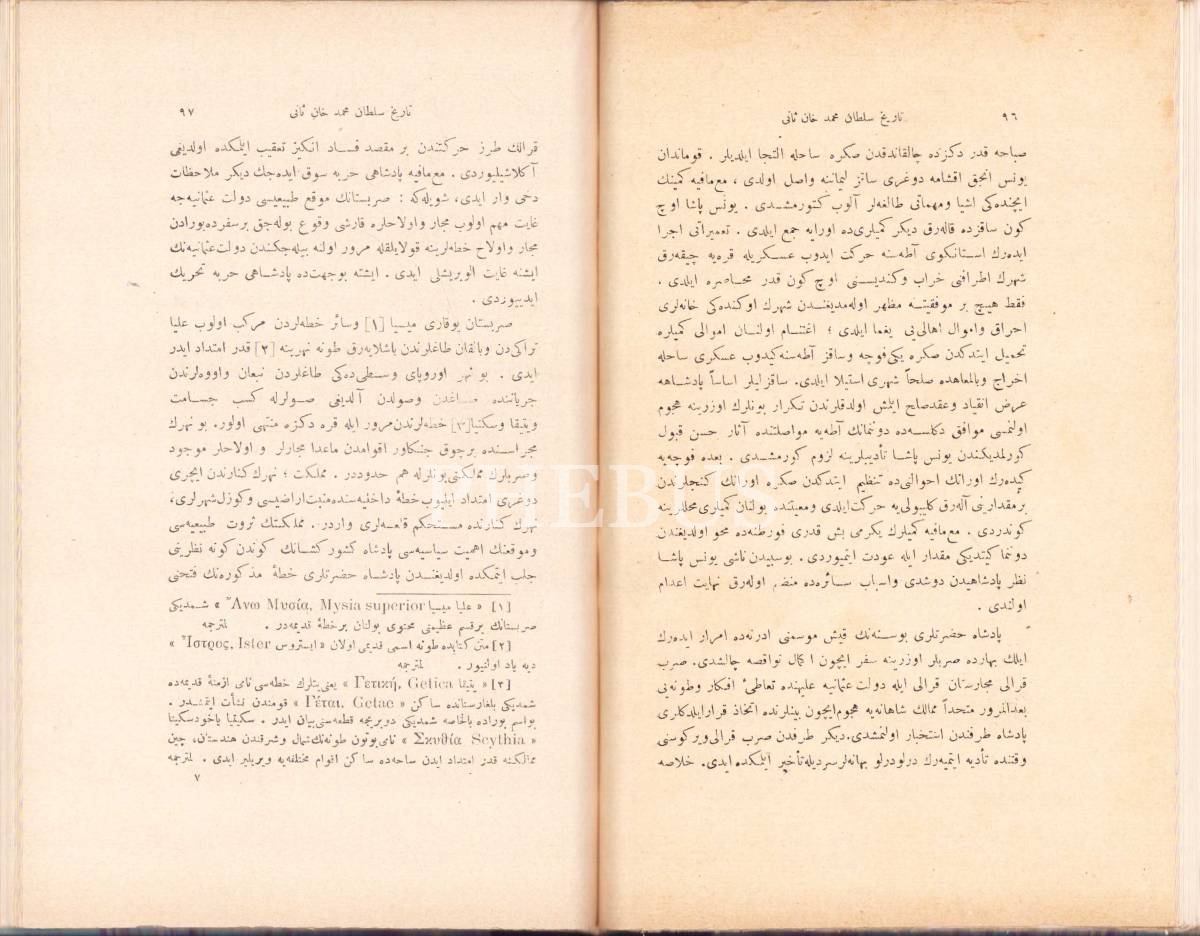 ٩٦ تاریخ سلطان محمد خان ثانی
صباحه قدر دكزده چالقاندقدن صكره ساحله التجا ایلدیلر . قوماندان
یونس انجق اقشامه دوغری ساقز لیماننه واصل اولدی ، مع‌مافیه كمینك
ایچنده‌كی اشیا ومهماتی طالغه‌لر آلوب كتورمشدی . یونس پاشا اوچ
كون ساقزده قاله‌رق دیكر كمیلری‌ده اورایه جمع ایلدی . تعمیراتی اجرا
ایده‌رك استانكوی آطه‌سنه حركت ایدوب عسكریله قره‌یه چیقه‌رق
شهرك اطرافنی خراب وكندیسنی اوچ كون قدر محاصره ایلدی .
فقط هیچ بر موفقیته مظهر اوله‌مدیغندن شهرك اوكنده‌كی خانه‌لری
احراق واموال اهالی‌یی یغما ایلدی ؛ اغتنام اولنان اموالی كمیلره
تحمیل ایتدكدن صكره یكی‌فوچه وساقز آطه‌سنه كیدوب عسكری ساحله
اخراج وبالمعاهده صلحاً شهری استیلا ایلدی. ساقزلیلر اساساً پادشاهه
عرض انقیاد وعقدصلح ایتمش اولدقلرندن تكرار بونلرك اوزرینه هجوم
اولنمسی موافق دكلسه‌ده دوننمانك آطه‌یه مواصلتنده آثار حسن قبول
كورلمدیكندن یونس پاشا تأدیبلرینه لزوم كورمشدی . بعده فوچه‌یه
كیده‌رك اورانك احوالنی‌ده تنظیم ایتدكدن صكره اورانك كنجلرندن
برمقدارینی آله‌رق كلیبولی‌یه حركت‌ایلدی ومعیتنده بولنان كمیلری‌محللرینه
كوندردی . مع‌مافیه كمیلرك یكرمی بش قدری فورطنه‌ده محو اولدیغندن
دوننما كیتدیكی مقدار ایله عودت ایتمیوردی . بوسببدن ناشی یونس پاشا
نظر پادشاهیدن دوشدی واسباب سائره‌ده منضم اوله‌رق نهایت اعدام
اولندی .
پادشاه حضرتلری بوسنه‌نك قیش موسمنی ادرنه‌ده امرار ایده‌رك
ایلك بهارده صربلر اوزرینه سفر ایچون اكمال نواقصه چالشدی. صرب
قرالی مجارستان قرالی ایله دولت عثمانیه علیهنده تعاطیٔ افكار وطونه‌یی
بعدالمرور متحداً ممالك شاهانه‌یه هجوم‌ایچون بینلرنده اتخاذ قرارایلدكلری
پادشاه طرفندن استخبار اولنمشدی.دیكر طرفدن صرب قرالی‌ویركوسنی
وقتنده تأدیه ایتمیه‌رك درلودرلو بهانه‌لرسردیله‌تأخیر ایلمكده ایدی. خلاصه
تاریخ سلطان محمد خان ثانی ٩٧
قرالك طرز حركتندن بر مقصد فساد انكیز تعقیب ایلمكده اولدیغی
آكلاشیلیوردی . مع‌مافیه پادشاهی حربه سوق ایده‌جك دیكر ملاحظات
دخی وار ایدی، شویله‌كه : صربستانك موقع طبیعیسی دولت عثمانیه‌جه
غایت مهم اولوب مجار واولاحلره قارشی وقوع بوله‌جق برسفرده‌بورادن
مجار واولاح خطه‌لرینه قولایلقله مرور اولنه بیله‌جكندن دولت‌عثمانیه‌نك
ایشنه غایت الویریشلی ایدی . ایشته بوجهت‌ده پادشاهی حربه تحریك
ایدییوردی .
صربستان یوقاری میسیا [١] وسائر خطه‌لردن مركب اولوب علیا
تراكی‌دن وبالقان طاغلرندن باشلایه‌رق طونه نهرینه [٢] قدر امتداد ایدر
ایدی . بو نهر اوروپای وسطی‌ده‌كی طاغلردن نبعان واووه‌لرندن
جریاننده صاغدن وصولدن آلدیغی صولرله كسب جسامت
ویتیقا وسكتیا[٣] خطه‌لرندن‌مرور ایله قره دكزه منتهی اولور. بو نهرك
مجراسنده برچوق جنكاور اقوامدن ماعدا مجارلر و اولاحلر موجود
وصربلرك مملكتی‌بونلرله هم حدوددر . مملكت ؛ نهرك‌كنارندن ایچری
دوغری امتداد ایلیوب خطهٔ داخلیه‌سنده‌منبت‌اراضیسی وكوزل‌شهرلری،
نهرك كنارنده مستحكم قلعه‌لری واردر. مملكتك ثروت طبیعیه‌سی
وموقعنك اهمیت سیاسیه‌سی پادشاه كشوركشانك كوندن كونه نظرینی
جلب ایتمكده اولدیغندن پادشاه حضرتلری خطهٔ مذكوره‌نك فتحنی
[١] « علیا میسیا Ἄνω Μυσία, Mysia superior » شمدیكی
صربستانك برقسم عظیمنی محتوی بولنان برخطهٔ قدیمه‌در . لمترجمه
[٢] متن كتابده طونه اسمی قدیمی اولان « ایستروس Ἴστρος, Ister »
دیه یاد اولنیور . لمترجمه
[٣] « یتیقا Γετική, Getica » یعنی‌یتلرك خطه‌سی نامی ازمنهٔ قدیمه‌ده
شمدیكی بلغارستانده ساكن « Γέται, Getae » قومندن نشأت ایتمشدر .
بواسم بوراده بالخاصه شمدیكی دوبریجه قطعه‌سنی‌بیان ایدر . سكیتیا یاخودسكیتا
« Σκυθία Scythia » نامی‌بوتون طونه‌نك‌شمال وشرقندن هندستان، چین
ممالكنه قدر امتداد ایدن ساحه‌ده ساكن اقوام مختلفه‌یه ویریلیر ایدی . لمترجمه
٧